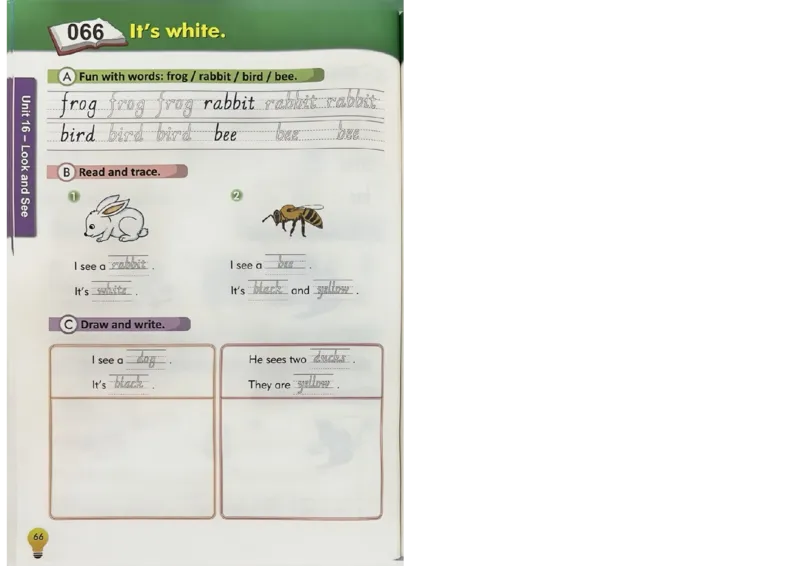 066 It's white.
Unit 16 – Look and See
A Fun with words: frog / rabbit / bird / bee.
frog frog frog rabbit rabbit rabbit
bird bird bird bee bee bee
B Read and trace.
1
I see a rabbit.
It's white.
2
I see a bee.
It's black and yellow.
C Draw and write.
I see a dog.
It's black.
He sees two ducks.
They are yellow.
66